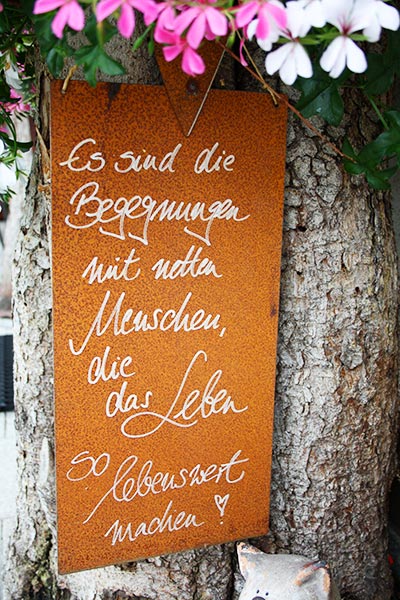 Es sind die
Begegnungen
mit netten
Menschen,
die
das Leben
so lebenswert
machen!